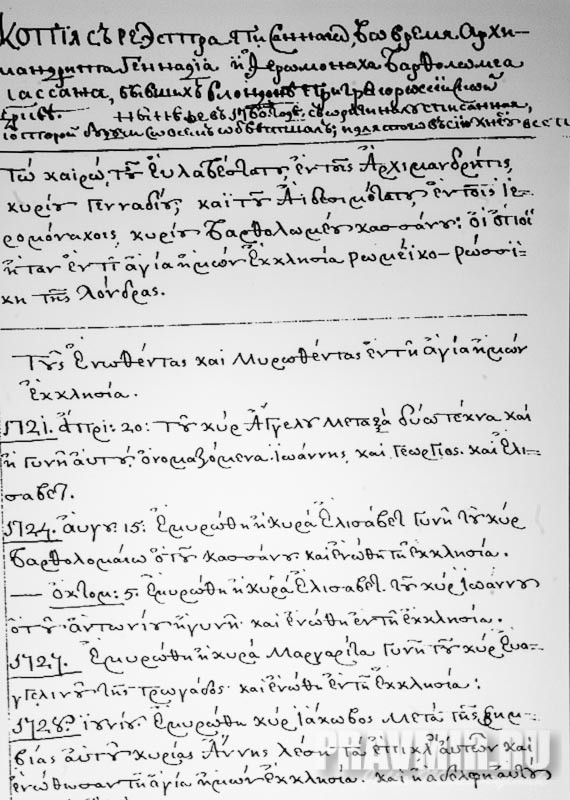 Копїя съ реэстра пїсаннаго, во время Архи-
мандрита Геннадїа и Іеромонаха Варѳоломеа
Іассана, бывшихъ в Лондоне при грекороссїйской
церкве. Ныне же въ 1760 годе съ оригиналу списанная,
Τῷ καιρῷ, τοῦ Εὐλαβεστάτου, ἐν τοῖς Ἀρχιμανδρήταις,
κυρίου Γενναδίου; καὶ τοῦ Αἰδεσιμοτάτου ἐν τοῖς Ἱε-
ρομόναχοις, κυρίου Βαρθολωμέου κασσάνου: οἱ ὁποῖοι
ἦταν ἐν τῇ ἁγίᾳ ἡμῶν Ἐκκλησία ρωμέϊκο-ρωσσί-
κη τῆς Λόνδρας.
Τοὺς Ἑνωθέντας καὶ Μυρωθέντας ἐν τῇ ἁγίᾳ ἡμῶν
Ἐκκλησία.
1721. ἀπρι: 20: τοῦ κὺρ Ἀγγέλου μεταξᾶ δύω τέκνα καὶ
ἡ γυνὴ αὐτοῦ, ὀνομαζόμενα Ἰωάννης, καὶ Γεώργιος. καὶ Ἐλι-
σαβετ.
1724. ἀυγου: 15: Ἐμυρώθη ἡ κυρὰ Ἐλισάβετ γυνὴ τοῦ κὺρ
Βαρθολομαίω ὁτοῦ κασσάνου. καὶ ἑνώθη τῇ ἐκκλησία.
— ὀκτομ: 5: Ἐμυρώθη ἡ κυρὰ Ἐλισαβετ. τοῦ κὺρ Ἰωάννου
ὁτοῦ ἀντωνίου ἡ γυνὴ. καὶ ἑνώθη ἐν τῇ ἐκκλησία.
1727. Ἐμυρώθη ἡ κυρὰ Μαργαρίτα γυνὴ τοῦ κὺρ Εὐα-
γγελινοῦ τῆς τρωγάδος. καὶ ἑνώθη ἐν τῇ Ἐκκλησία:
1728. ἰουνίου Ἐμυρώθη κὺρ Ἰάκωβος μετὰ τῆς συμ-
βίας αὐτοῦ κυρίας Ἄννης λέση τὰ ἐπικλ αὐτῶν καὶ
ἑνώθησαν τῇ ἁγίᾳ ἡμῶν Ἐκκλησία. καὶ ἡ ἀδελφὴ αὐτοῦ
PRAVMIR.RU